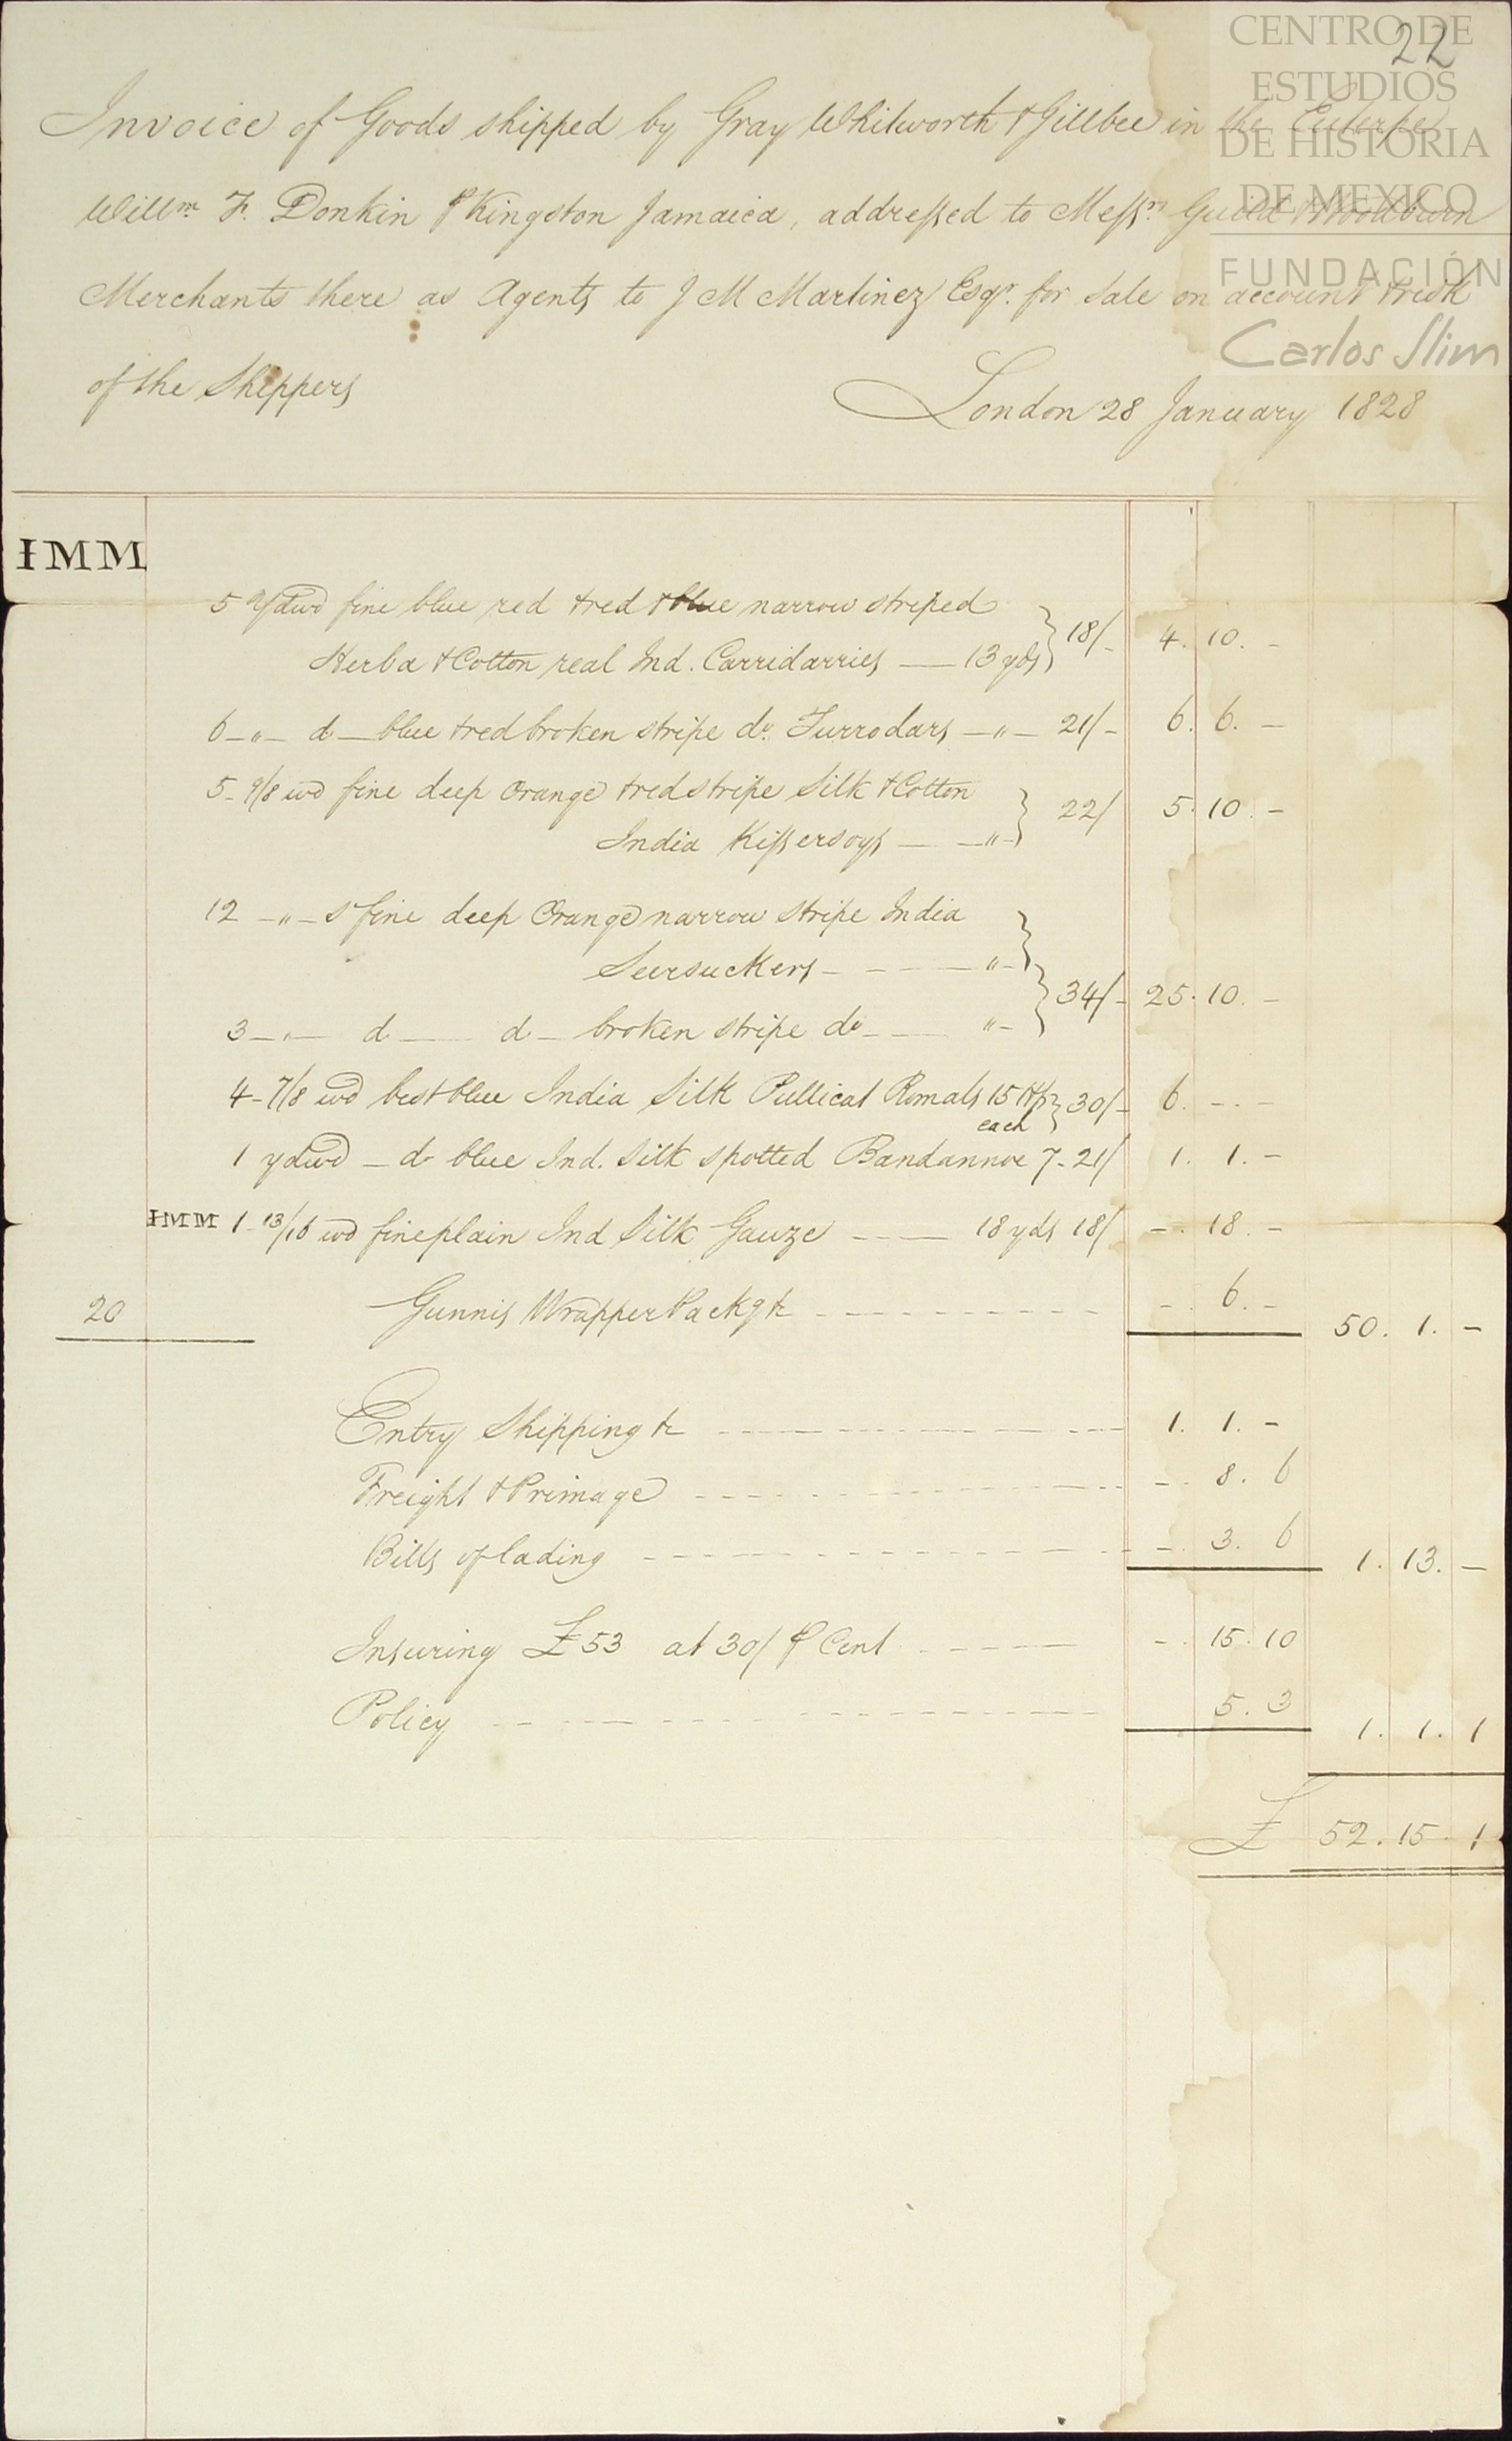 22
CENTRO DE
ESTUDIOS
DE HISTORIA
DE MEXICO
FUNDACIÓN
Carlos Slim
Invoice of Goods shipped by Gray Whitworth & Gillbee in the Euterpe
Willm. F. Donkin ⅌ Kingston Jamaica, addressed to Messrs. Guild & Woodburn
Merchants there as Agents to J M Martinez Esqr. for Sale on account & risk
of the Shippers
London 28 January 1828
IMM
5 ydwd fine blue red & red & blue narrow striped
Herba & Cotton real Ind. Carridarries — 13 yds } 18/- 4. 10. -
6 -"- do - blue & red broken stripe do. Turrodars -"- 21/- 6. 6. -
5 - 9/8 wd fine deep Orange & red stripe Silk & Cotton
India Kissersoys — -"- } 22/ 5. 10. -
12 -"- S fine deep Orange narrow stripe India
Seersuckers - - - - "- }
3 -"- do — do - broken stripe do - - "- } 34/- 25. 10. -
4 - 7/8 wd best blue India Silk Pullicat Romals 15 Hfs each } 30/- 6. - . -
1 ydwd - do blue Ind. Silk spotted Bandannoe 7 - 21/ 1. 1. -
IMM 1 - 13/16 wd fine plain Ind Silk Gauze — 18 yds 18/ -. 18. -
20 Gunnis Wrapper Packg &c - - - - - 6. - 50. 1. -
Entry Shipping &c - - - - 1. 1. -
Freight & Primage - - - - -. 8. 6
Bills of lading - - - - -. 3. 6 1. 13. -
Insuring £53 at 30/ ⅌ Cent - - - - -. 15. 10
Policy - - - - 5. 3 1. 1. 1
£ 52. 15. 1